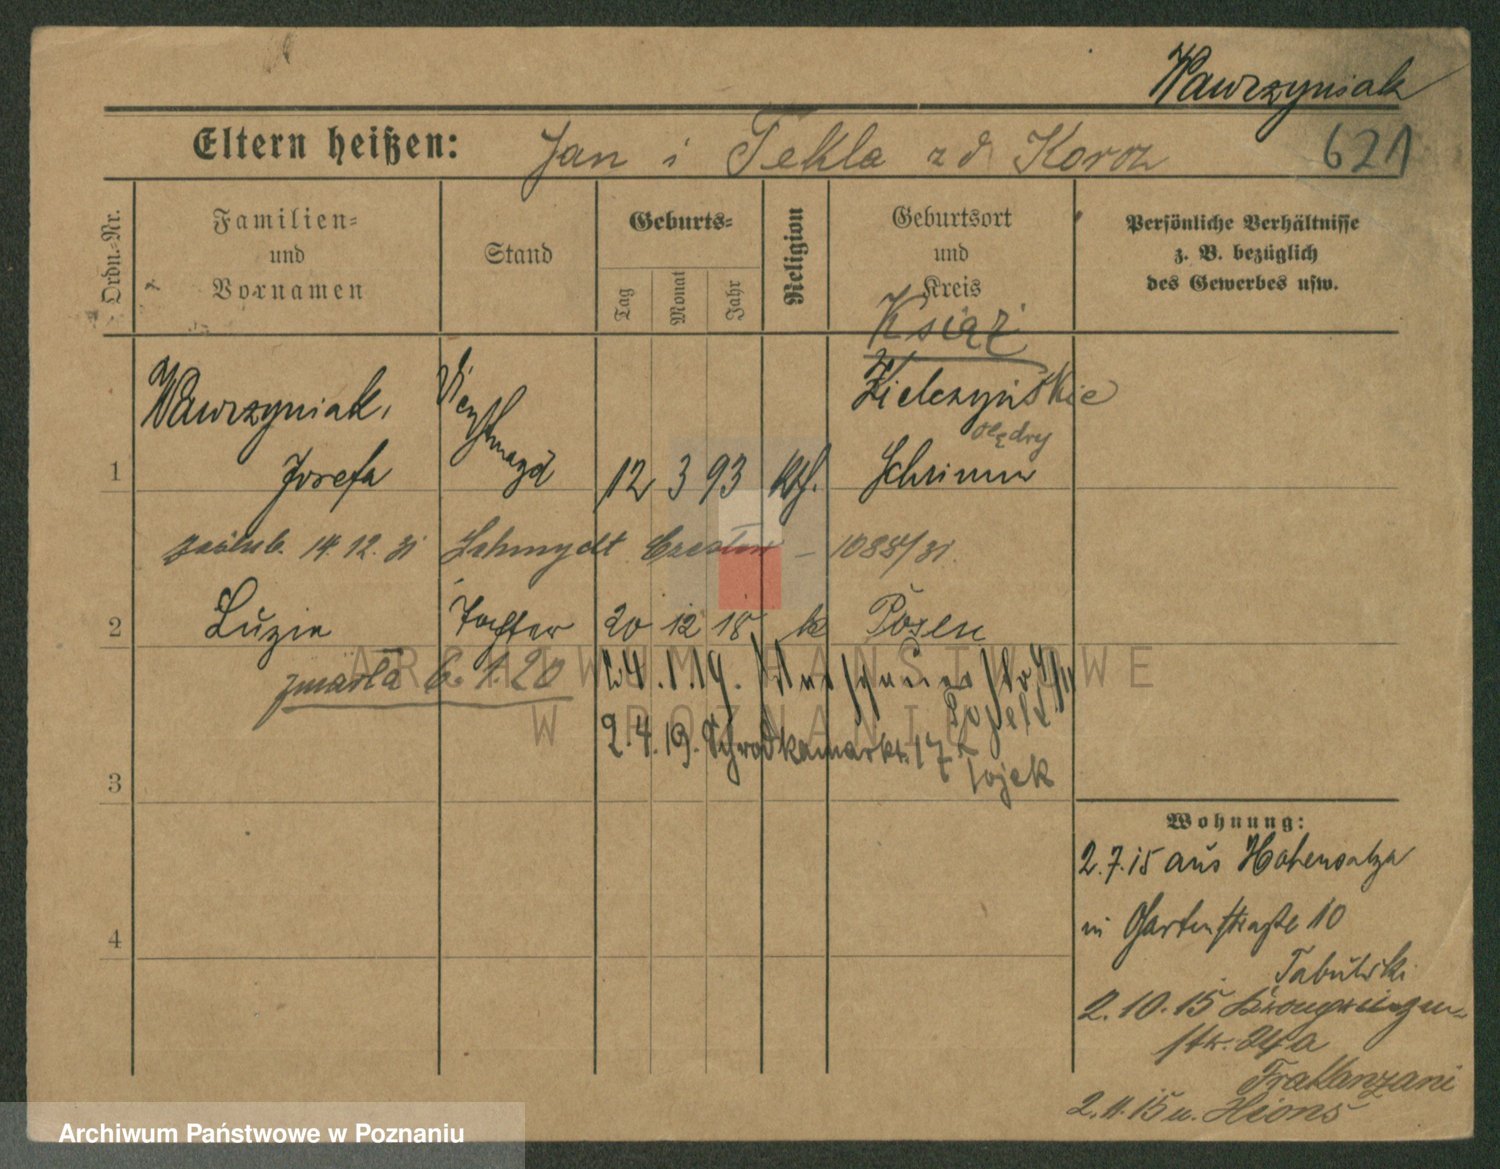 Wawrzyniak
Eltern heißen: Jan i Tekla zd Korcz 621
Ordn.-Nr.
Familien- und Vornamen
Stand
Geburts-
Tag
Monat
Jahr
Religion
Geburtsort und Kreis
Persönliche Verhältnisse
z. B. bezüglich
des Gewerbes usw.
Książ
Wawrzyniak, Zielczyńskie
olędry
1 Josefa 12 3 93 kth. Schrimm
zaślub. 14.12.31 Schmydt Czesław – 1088/31.
2 Luzia Tochter 20 12 18 k Posen
zmarła 6.1.20 24.1.19.
2.4.19. Schrodkamarkt 17
Sojek
3
4
Wohnung:
2.7.15 aus Hohensalza
in Gartenstraße 10
Tabulski
2.10.15 Kronprinzen-
str. 24a
2.11.15 u. Hions
ARCHIWUM PAŃSTWOWE
W POZNANIU
Archiwum Państwowe w Poznaniu